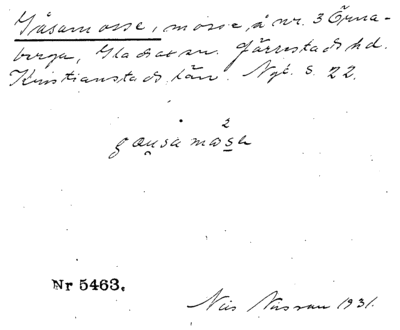 Gåsamosse, mosse, å nr. 3 Örna-
berga, Gladsax sn. Järrestads hd.
Kristianstads län. Nyt. s. 22.
2
gau̯sa mos̲a
Nr 5463.
Nils 1931.